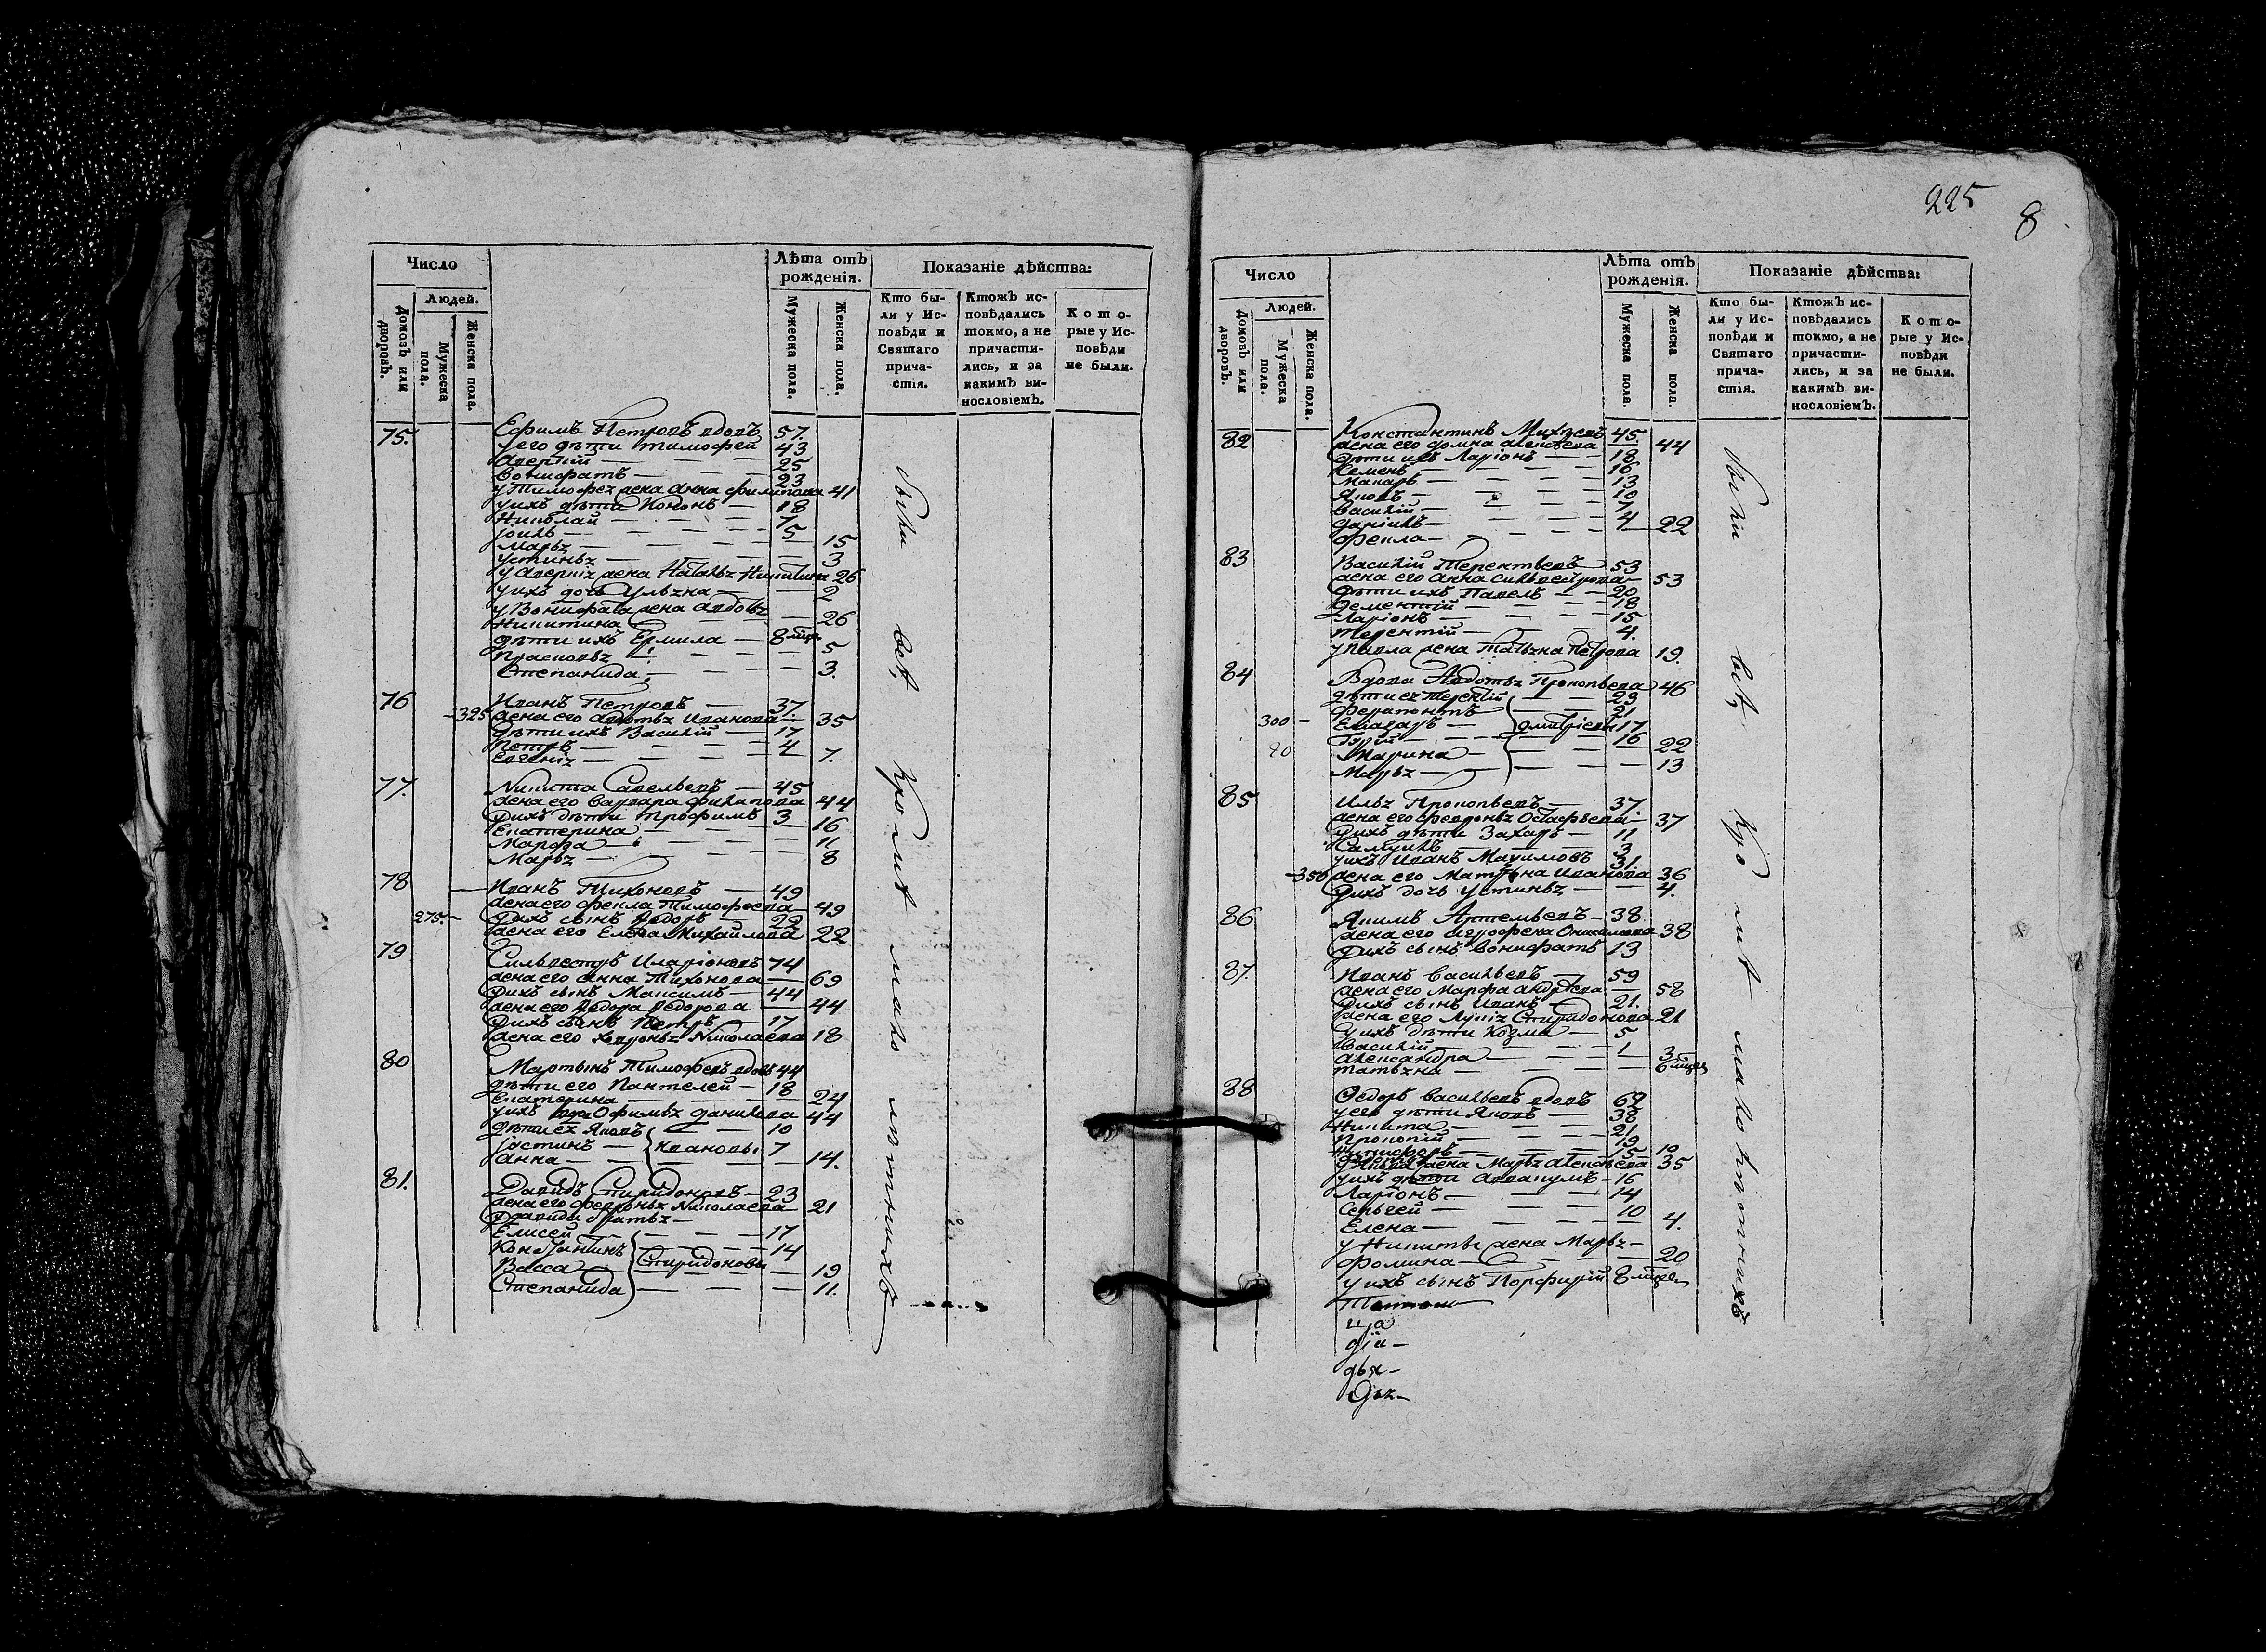 225
8
Число
Людей.
Домовъ или дворовъ.
Мужеска пола.
Женска пола.
Лѣта отъ рожденія.
Мужеска пола.
Женска пола.
Показаніе дѣйства:
Кто бы-
ли у Ис-
повѣди и
Святаго
прича-
стія.
Ктожъ ис-
повѣдались
токмо, а не
причасти-
лись, и за
какимъ ви-
нословіемъ.
К о т о-
рые у Ис-
повѣди
не были.
75. Ефимъ Петровъ вдовъ 57.
его дѣти Тимофей 43
Аверкій 25
Вонифатъ 23
у Тимофея жена Анна Филипова 41
у ихъ дѣти Кононъ 18
Николай 7
Іоиль 5
Марья 15
Устинья 3
у Аверкія жена Наталья Никитина 26
у ихъ дочь Ульяна 2
у Вонифата жена Авдотья
Никитина 26
дѣти ихъ Ермила 8 мцо.
Прасковья 5
Степанида 3.
76 Иванъ Петровъ 37
325 жена его Авдотья Иванова 35
дѣти ихъ Василій 17
Петръ 4
Евгенія 7.
77. Никита Савельевъ 45
жена его Варвара Филипова 44
у ихъ дѣти Трофимъ 3
Екатерина 16
Марфа 11
Марья 8
78 Иванъ Тихоновъ 49
жена его Фекла Тимофеева 49
275. у ихъ сынъ Ѳедоръ 22
жена его Елена Михайлова 22
79 Сильвестръ Иларіоновъ 74
жена его Анна Тихонова 69
у ихъ сынъ Максимъ 44
жена его Ѳедора Ѳедорова 44
у ихъ сынъ Петръ 17
жена его Хавронья Николаева 18
80 Мартынъ Тимофеевъ вдовъ 44
дѣти его Пантелей 18
Екатерина 24
у ихъ Офимья Данилова 44
дѣти ея Яковъ 10
Іустинъ Ивановы 7
Анна 14.
81. Давидъ Спиридоновъ 23
жена его Февронья Николаева 21
у Давида братья
Елисей 17
Константинъ Спиридоновы 14
Васса 19
Степанида 11.
были всѣ кромѣ малолѣтнихъ
Число
Людей.
Домовъ или дворовъ.
Мужеска пола.
Женска пола.
Лѣта отъ рожденія.
Мужеска пола.
Женска пола.
Показаніе дѣйства:
Кто бы-
ли у Ис-
повѣди и
Святаго
прича-
стія.
Ктожъ ис-
повѣдались
токмо, а не
причасти-
лись, и за
какимъ ви-
нословіемъ.
К о т о-
рые у Ис-
повѣди
не были.
82 Константинъ Михѣевъ 45
жена его Домна Алексѣева 44
дѣти ихъ Ларіонъ 18
Семенъ 16
Макаръ 13
Яковъ 10
Василій 7
Даніилъ 4
Фекла 22
83 Василій Терентьевъ 53
жена его Анна Сильвестрова 53
дѣти ихъ Павелъ 20
Дементій 18
Ларіонъ 15
Терентій 4.
у Павла жена Татьяна Петрова 19.
84 Вдова Авдотья Прокопьева 46
дѣти ея Терентій 23
Ферапонтъ 21
300 Елиазаръ Дмитріевы 17
Гурій 16
Марина 22
Марья 13
85 Илья Прокопьевъ 37
жена его Февронья Остафьева 37
у ихъ дѣти Захаръ 11
Самуилъ 3
у ихъ Иванъ Максимовъ 31.
350 жена его Матрена Иванова 36
у ихъ дочь Устинья 4.
86 Якимъ Артемьевъ 38
жена его Агрофена Онисимова 38
у ихъ сынъ Вонифатъ 13
87. Иванъ Васильевъ 59
жена его Марфа Андреева 58
у ихъ сынъ Иванъ 21.
жена его Лукія Спиридонова 21
у ихъ дѣти Козма 5
Василій 1
Александра 3
Татьяна 6 мцев
88 Ѳедоръ Васильевъ вдовъ 69
у его дѣти Яковъ 38
Никита 21
Прокопій 19
Никифоръ 15
у Якова жена Марья Алексѣева 35
у ихъ дѣти Аввакумъ 16
Ларіонъ 14
Сергей 10
Елена 4.
у Никиты жена Марья
Фомина 20
у ихъ сынъ Порфирій 8 мцев
были всѣ кромѣ малолѣтнихъ